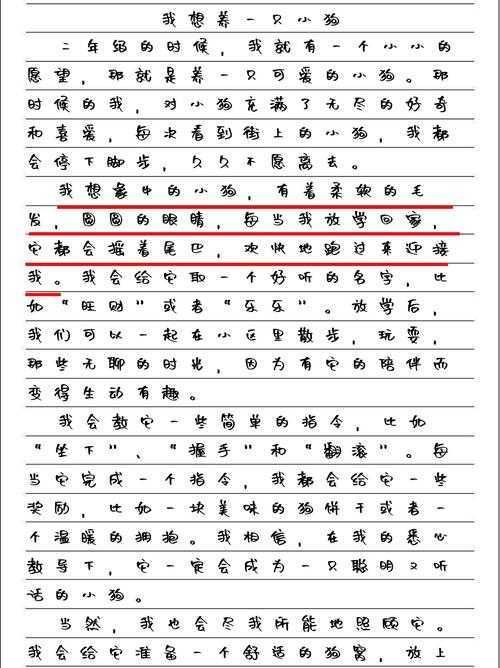 我想养一只小狗
二年级的时候，我就有一个小小的
愿望，那就是养一只可爱的小狗。那
时候的我，对小狗充满了无尽的好奇
和喜爱，每次看到街上的小狗，我都
会停下脚步，久久不愿离去。
我想象中的小狗，有着柔软的毛
发，圆圆的眼睛，每当我放学回家，
它都会摇着尾巴，欢快地跑过来迎接
我。我会给它取一个好听的名字，比
如“旺财”或者“乐乐”。放学后，
我们可以一起在小区里散步，玩耍，
那些无聊的时光，因为有它的陪伴而
变得生动有趣。
我会教它一些简单的指令，比如
“坐下”、“握手”和“翻滚”。每
当它完成一个指令，我都会给它一些
奖励，比如一块美味的狗饼干或者一
个温暖的拥抱。我相信，在我的悉心
教导下，它一定会成为一只聪明又听
话的小狗。
当然，我也会尽我所能地照顾它。
我会给它准备一个舒适的狗窝，放上